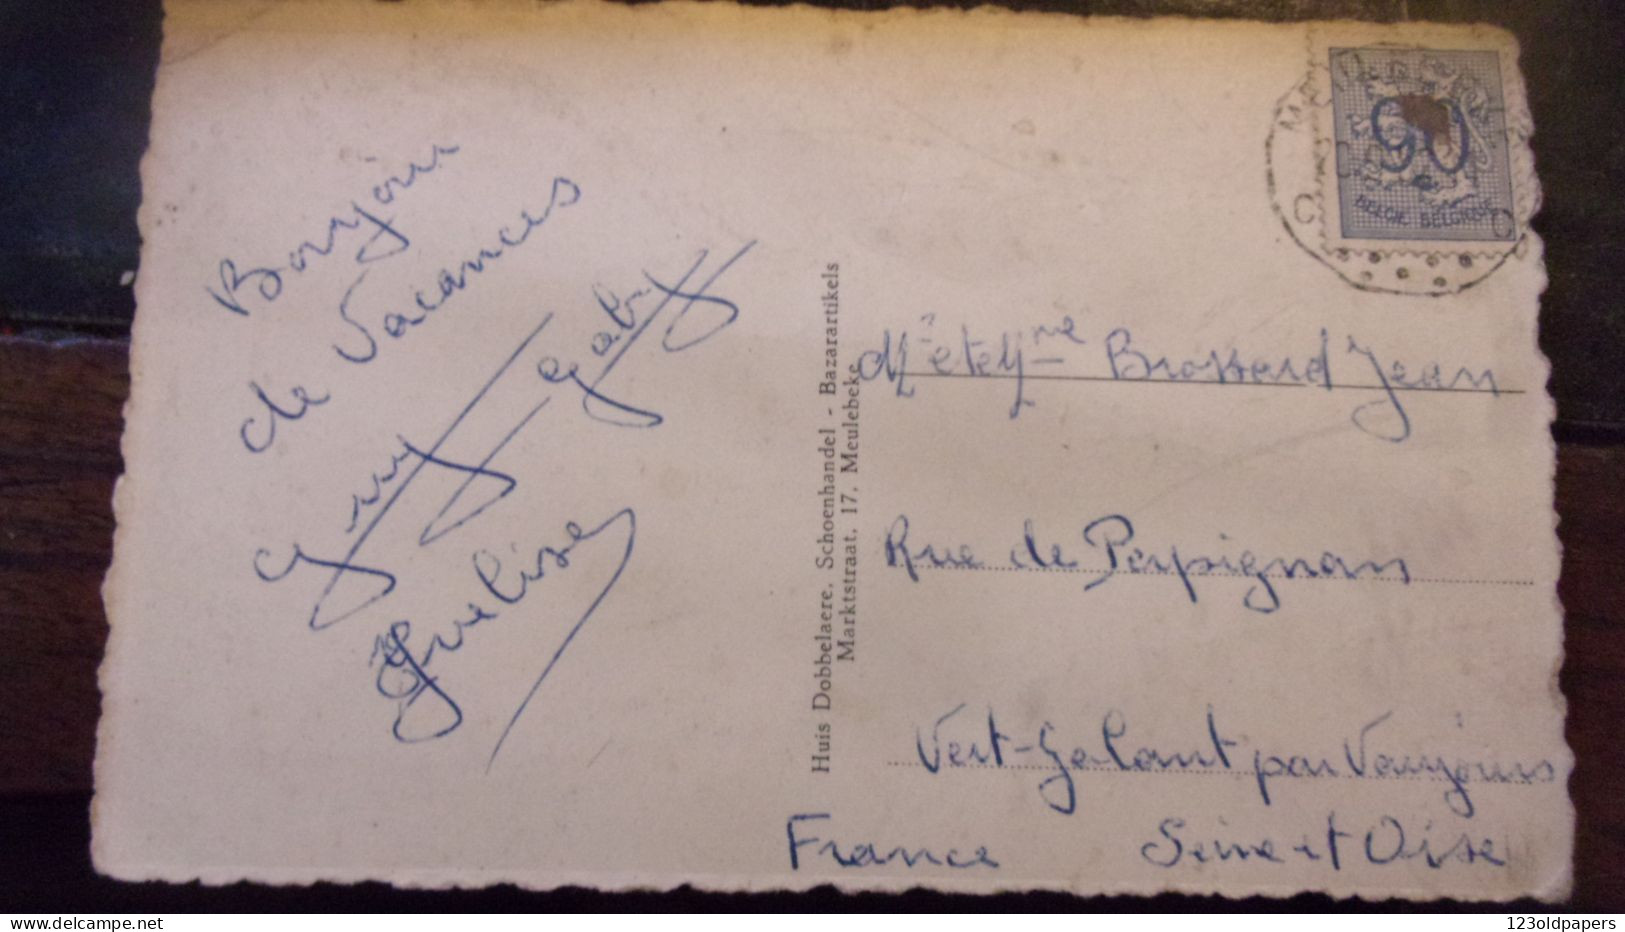 Bonjour
de Vacances
Guy Gaby
Huis Dobbelaere. Schoenhandel - Bazarartikels
Marktstraat, 17, Meulebeke
90
BELGIE BELGIQUE
Mr et Mme Brossard Jean
Rue de Perpignan
Vert-Galant par Vaujours
France Seine et Oise
123oldpapers